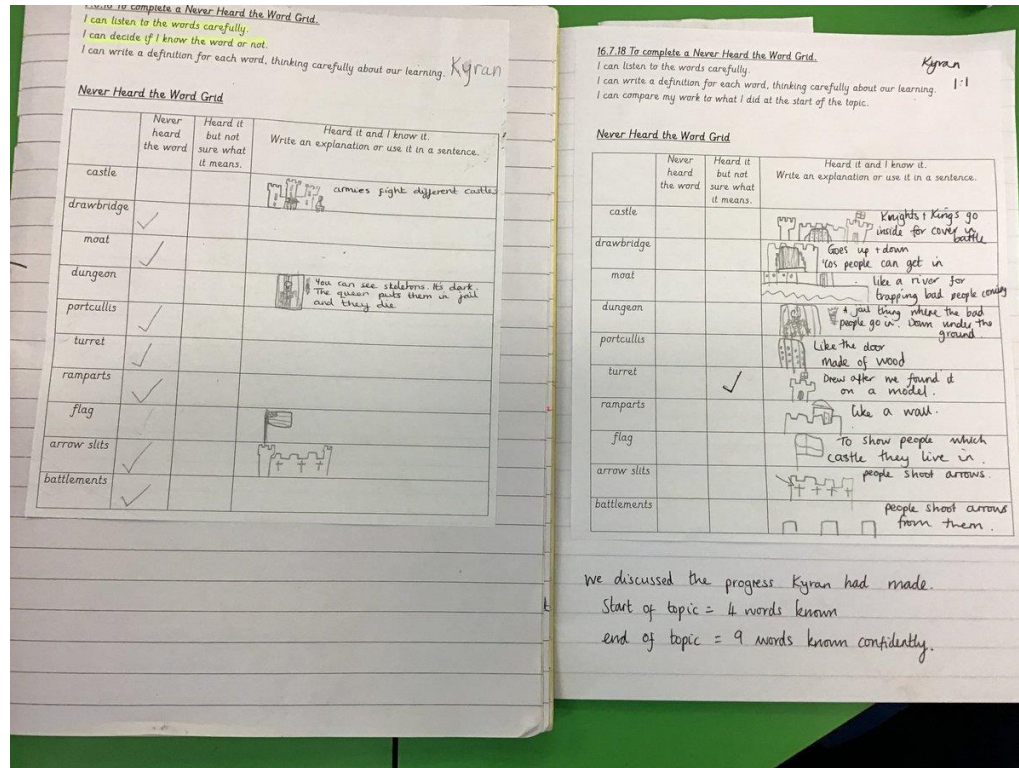 To complete a Never Heard the Word Grid.
I can listen to the words carefully.
I can decide if I know the word or not.
I can write a definition for each word, thinking carefully about our learning.
Kyran
Never Heard the Word Grid
Never heard the word
Heard it but not sure what it means.
Heard it and I know it.
Write an explanation or use it in a sentence.
castle
armies fight different castles
drawbridge
moat
dungeon
You can see skeletons. Its dark.
The queen puts them in jail
and they die.
portcullis
turret
ramparts
flag
arrow slits
battlements
16.7.18 To complete a Never Heard the Word Grid.
I can listen to the words carefully.
I can write a definition for each word, thinking carefully about our learning.
I can compare my work to what I did at the start of the topic.
Kyran
1:1
Never Heard the Word Grid
Never heard the word
Heard it but not sure what it means.
Heard it and I know it.
Write an explanation or use it in a sentence.
castle
Knights + Kings go
inside for cover in
battle
drawbridge
Goes up + down
'cos people can get in
moat
like a river for
trapping bad people coming
dungeon
A jail thing where the bad
people go in. Down under the
ground.
portcullis
Like the door
made of wood
turret
Drew after we found it
on a model.
ramparts
like a wall.
flag
To show people which
castle they live in.
arrow slits
people shoot arrows.
battlements
people shoot arrows
from them.
We discussed the progress Kyran had made.
Start of topic = 4 words known
end of topic = 9 words known confidently.